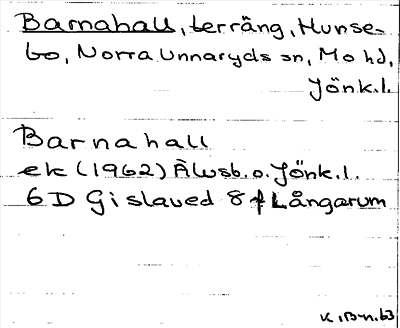 Barnahall, terräng, Hunse-
bo, Norra Unnaryds sn, Mo hd,
Jönk.l.
Barnahall
ek (1962) Älvsb. o. Jönk.l.
6D Gislaved 8f Långarum
K.Bm.63